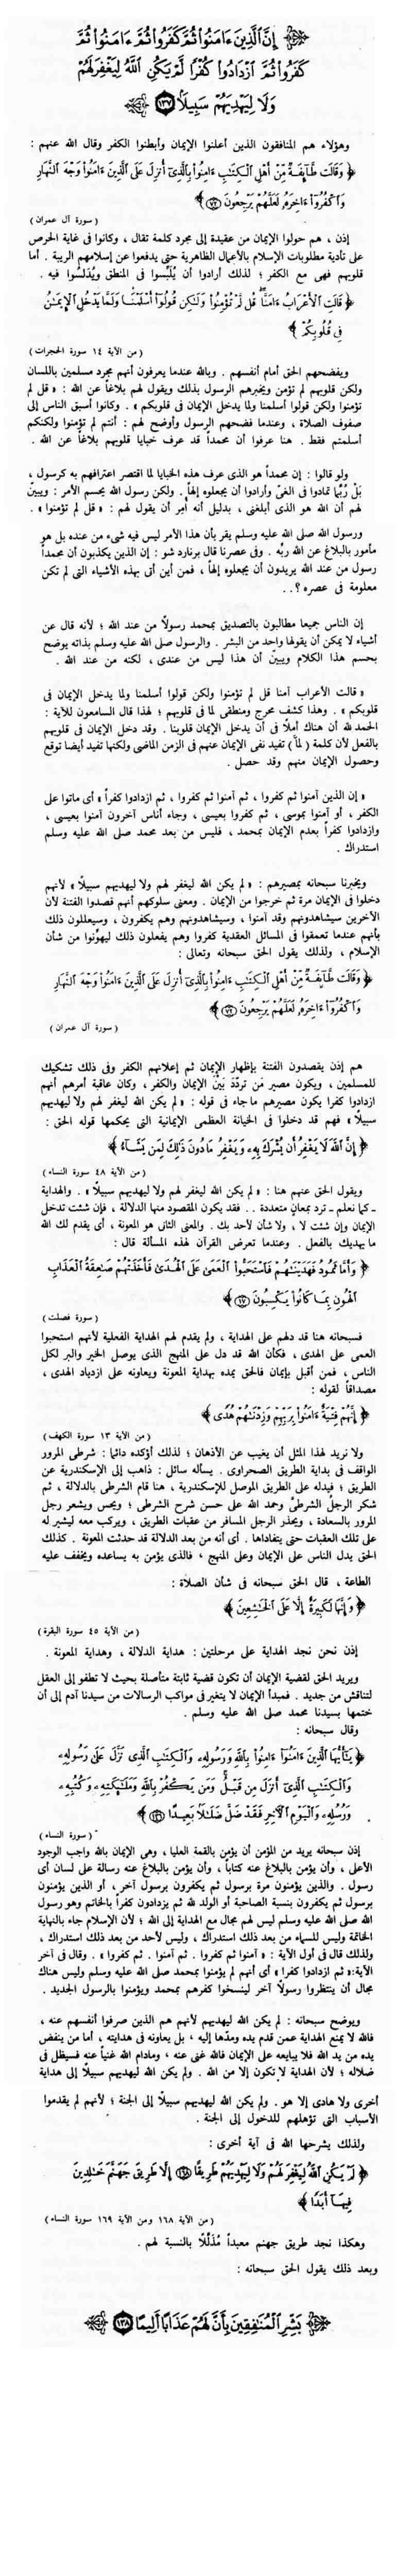 إِنَّ ٱلَّذِينَ ءَامَنُوا۟ ثُمَّ كَفَرُوا۟ ثُمَّ ءَامَنُوا۟ ثُمَّ
كَفَرُوا۟ ثُمَّ ٱزْدَادُوا۟ كُفْرًا لَّمْ يَكُنِ ٱللَّهُ لِيَغْفِرَ لَهُمْ
وَلَا لِيَهْدِيَهُمْ سَبِيلًۢا ١٣٧
وهؤلاء هم المنافقون الذين أعلنوا الإيمان وأبطنوا الكفر وقال الله عنهم :
﴿ وَقَالَت طَّآئِفَةٌ مِّنْ أَهْلِ ٱلْكِتَٰبِ ءَامِنُوا۟ بِٱلَّذِىٓ أُنزِلَ عَلَى ٱلَّذِينَ ءَامَنُوا۟ وَجْهَ ٱلنَّهَارِ
وَٱكْفُرُوٓا۟ ءَاخِرَهُۥ لَعَلَّهُمْ يَرْجِعُونَ ٧٢ ﴾
( سورة آل عمران )
إذن ، هم حولوا الإيمان من عقيدة إلى مجرد كلمة تقال ، وكانوا فى غاية الحرص
على تأدية مطلوبات الإسلام بالأعمال الظاهرية حتى يدفعوا عن إسلامهم الريبة . أما
قلوبهم فهى مع الكفر ؛ لذلك أرادوا أن يُلَبِّسوا فى المنطق ويُدَلسُوا فيه .
﴿ قَالَتِ ٱلْأَعْرَابُ ءَامَنَّا قُل لَّمْ تُؤْمِنُوا۟ وَلَٰكِن قُولُوٓا۟ أَسْلَمْنَا وَلَمَّا يَدْخُلِ ٱلْإِيمَٰنُ
فِى قُلُوبِكُمْ ﴾
( من الآية ١٤ سورة الحجرات )
ويفضحهم الحق أمام أنفسهم . وبالله عندما يعرفون أنهم مجرد مسلمين باللسان
ولكن قلوبهم لم تؤمن ويخبرهم الرسول بذلك ويقول لهم بلاغاً عن الله : « قل لم
تؤمنوا ولكن قولوا أسلمنا ولما يدخل الإيمان فى قلوبكم » . وكانوا أسبق الناس إلى
صفوف الصلاة ، وعندما فضحهم الرسول وأوضح لهم : أنتم لم تؤمنوا ولكنكم
أسلمتم فقط . هنا عرفوا أن محمداً قد عرف خبايا قلوبهم بلاغاً عن الله .
ولو قالوا : إن محمداً هو الذى عرف هذه الخبايا لما اقتصر اعترافهم به كرسول ،
بَلْ رُبَّما تمادوا فى الغىّ وأرادوا أن يجعلوه إلهاً . ولكن رسول الله يحسم الأمر : ويبيّن
لهم أن الله هو الذى أبلغنى ، بدليل أنه أمر أن يقول لهم : « قل لم تؤمنوا » .
ورسول الله صلى الله عليه وسلم يقر بأن هذا الأمر ليس فيه شىء من عنده بل هو
مأمور بالبلاغ عن الله ربِّه . وفى عصرنا قال برنارد شو : إن الذين يكذبون أن محمداً
رسول من عند الله يريدون أن يجعلوه إلهاً ، فمن أين أتى بهذه الأشياء التى لم تكن
معلومة فى عصره ؟ . .
إن الناس جميعا مطالبون بالتصديق بمحمد رسولاً من عند الله ؛ لأنه قال عن
أشياء لا يمكن أن يقولها واحد من البشر . والرسول صلى الله عليه وسلم بذاته يوضح
بحسم هذا الكلام ويبيّن أن هذا ليس من عندى ، لكنه من عند الله .
« قالت الأعراب آمنا قل لم تؤمنوا ولكن قولوا أسلمنا ولما يدخل الإيمان فى
قلوبكم » . وهذا كشف محرج ومنطقى لما فى قلوبهم ؛ لهذا قال السامعون للآية :
الحمد لله أن هناك أملًا فى أن يدخل الإيمان قلوبنا . وقد دخل الإيمان فى قلوبهم
بالفعل لأن كلمة ( لمّا ) تفيد نفى الإيمان عنهم فى الزمن الماضى ولكنها تفيد أيضا توقع
وحصول الإيمان منهم وقد حصل .
« إن الذين آمنوا ثم كفروا ، ثم آمنوا ثم كفروا ، ثم ازدادوا كفراً » أى ماتوا على
الكفر ، أو آمنوا بموسى ، ثم كفروا بعيسى ، وجاء أناس آخرون آمنوا بعيسى ،
وازدادوا كفراً بعدم الإيمان بمحمد ، فليس من بعد محمد صلى الله عليه وسلم
استدراك .
ويخبرنا سبحانه بمصيرهم : « لم يكن الله ليغفر لهم ولا ليهديهم سبيلًا » لأنهم
دخلوا فى الإيمان مرة ثم خرجوا من الإيمان . ومعنى سلوكهم أنهم قصدوا الفتنة لأن
الآخرين سيشاهدونهم وقد آمنوا ، وسيشاهدونهم وهم يكفرون ، وسيعللون ذلك
بأنهم عندما تعمقوا فى المسائل العقدية كفروا وهم يفعلون ذلك ليهوّنوا من شأن
الإسلام ، ولذلك يقول الحق سبحانه وتعالى :
﴿ وَقَالَت طَّآئِفَةٌ مِّنْ أَهْلِ ٱلْكِتَٰبِ ءَامِنُوا۟ بِٱلَّذِىٓ أُنزِلَ عَلَى ٱلَّذِينَ ءَامَنُوا۟ وَجْهَ ٱلنَّهَارِ
وَٱكْفُرُوٓا۟ ءَاخِرَهُۥ لَعَلَّهُمْ يَرْجِعُونَ ٧٢ ﴾
( سورة آل عمران )
هم إذن يقصدون الفتنة بإظهار الإيمان ثم إعلانهم الكفر وفى ذلك تشكيك
للمسلمين ، ويكون مصير مَن تردّد بَيْن الإيمان والكفر ، وكان عاقبة أمرهم أنهم
ازدادوا كفرا يكون مصيرهم ما جاء فى قوله : « لم يكن الله ليغفر لهم ولا ليهديهم
سبيلًا » فهم قد دخلوا فى الخيانة العظمى الإيمانية التى يحكمها قوله الحق :
﴿ إِنَّ ٱللَّهَ لَا يَغْفِرُ أَن يُشْرَكَ بِهِۦ وَيَغْفِرُ مَا دُونَ ذَٰلِكَ لِمَن يَشَآءُ ﴾
( من الآية ٤٨ سورة النساء )
ويقول الحق عنهم هنا : « لم يكن الله ليغفر لهم ولا ليهديهم سبيلًا » . والهداية
ـ كما نعلم ـ ترد بمعانٍ متعددة . . فقد يكون المقصود منها الدلالة ، فإن شئت تدخل
الإيمان وإن شئت لا ، ولا شأن لأحد بك . والمعنى الثانى هو المعونة ، أى يقدم لك الله
ما يهديك بالفعل . وعندما تعرض القرآن لهذه المسألة قال :
﴿ وَأَمَّا ثَمُودُ فَهَدَيْنَٰهُمْ فَٱسْتَحَبُّوا۟ ٱلْعَمَىٰ عَلَى ٱلْهُدَىٰ فَأَخَذَتْهُمْ صَٰعِقَةُ ٱلْعَذَابِ
ٱلْهُونِ بِمَا كَانُوا۟ يَكْسِبُونَ ١٧ ﴾
( سورة فصلت )
فسبحانه هنا قد دلهم على الهداية ، ولم يقدم لهم الهداية الفعلية لأنهم استحبوا
العمى على الهدى ، فكأن الله قد دل على المنهج الذى يوصل الخير والبر لكل
الناس ، فمن أقبل بإيمان فالحق يمده بهداية المعونة ويعاونه على ازدياد الهدى ،
مصداقاً لقوله :
﴿ إِنَّهُمْ فِتْيَةٌ ءَامَنُوا۟ بِرَبِّهِمْ وَزِدْنَٰهُمْ هُدًى ﴾
( من الآية ١٣ سورة الكهف )
ولا نريد لهذا المثل أن يغيب عن الأذهان ؛ لذلك أؤكده دائما : شرطى المرور
الواقف فى بداية الطريق الصحراوى . يسأله سائل : ذاهب إلى الإسكندرية عن
الطريق ؛ فيدله على الطريق الموصل للإسكندرية ، هنا قام الشرطى بالدلالة ، ثم
شكر الرجلُ الشرطىَّ وحمد الله على حسن شرح الشرطى ؛ ويحس ويشعر رجل
المرور بالسعادة ، ويحذر الرجل المسافر من عقبات الطريق ، ويركب معه ليشير له
على تلك العقبات حتى يتفاداها . أى أنه من بعد الدلالة قد حدثت المعونة . كذلك
الحق يدل الناس على الإيمان وعلى المنهج ، فالذى يؤمن به يساعده ويخفف عليه
الطاعة ، قال الحق سبحانه فى شأن الصلاة :
﴿ وَإِنَّهَا لَكَبِيرَةٌ إِلَّا عَلَى ٱلْخَٰشِعِينَ ﴾
( من الآية ٤٥ سورة البقرة )
إذن نحن نجد الهداية على مرحلتين : هداية الدلالة ، وهداية المعونة .
ويريد الحق لقضية الإيمان أن تكون قضية ثابتة متأصلة بحيث لا تطفو إلى العقل
لتناقش من جديد . فمبدأ الإيمان لا يتغير فى مواكب الرسالات من سيدنا آدم إلى أن
ختمها بسيدنا محمد صلى الله عليه وسلم .
وقال سبحانه :
﴿ يَٰٓأَيُّهَا ٱلَّذِينَ ءَامَنُوٓا۟ ءَامِنُوا۟ بِٱللَّهِ وَرَسُولِهِۦ وَٱلْكِتَٰبِ ٱلَّذِى نَزَّلَ عَلَىٰ رَسُولِهِۦ
وَٱلْكِتَٰبِ ٱلَّذِىٓ أَنزَلَ مِن قَبْلُ وَمَن يَكْفُرْ بِٱللَّهِ وَمَلَٰٓئِكَتِهِۦ وَكُتُبِهِۦ
وَرُسُلِهِۦ وَٱلْيَوْمِ ٱلْءَاخِرِ فَقَدْ ضَلَّ ضَلَٰلًۢا بَعِيدًا ١٣٦ ﴾
( سورة النساء )
إذن سبحانه يريد من المؤمن أن يؤمن بالقمة العليا ، وهى الإيمان بالله واجب الوجود
الأعلى ، وأن يؤمن بالبلاغ عنه كتاباً ، وأن يؤمن بالبلاغ عنه رسالة على لسان أى
رسول . والذين يؤمنون مرة برسول ثم يكفرون برسول آخر ، أو الذين يؤمنون
برسول ثم يكفرون بنسبة الصاحبة أو الولد لله ثم يزدادون كفراً بالخاتم وهو رسول
الله صلى الله عليه وسلم ليس لهم مجال مع الهداية إلى الله ؛ لأن الإسلام جاء بالنهاية
الخاتمة وليس للسماء من بعد ذلك استدراك ، وليس لأحد من بعد ذلك استدراك ،
ولذلك قال فى أول الآية : « آمنوا ثم كفروا . ثم آمنوا . ثم كفروا » . وقال فى آخر
الآية:« ثم ازدادوا كفرا » أى أنهم لم يؤمنوا بمحمد صلى الله عليه وسلم وليس هناك
مجال أن ينتظروا رسولًا آخر لينسخوا كفرهم بمحمد ويؤمنوا بالرسول الجديد .
ويوضح سبحانه : لم يكن الله ليهديهم لأنهم هم الذين صرفوا أنفسهم عنه ،
فالله لا يمنع الهداية عمن قدم يده ومدّها إليه ، بل يعاونه فى هدايته ، أما من ينفض
يده من يد الله فلا يبايعه على الإيمان فالله غنى عنه ، ومادام الله غنياً عنه فسيظل فى
ضلاله ؛ لأن الهداية لا تكون إلا من الله . ولم يكن الله ليهديهم سبيلًا إلى هداية
أخرى ولا هادى إلا هو . ولم يكن الله ليهديهم سبيلًا إلى الجنة ؛ لأنهم لم يقدموا
الأسباب التى تؤهلهم للدخول إلى الجنة .
ولذلك يشرحها الله فى آية أخرى :
﴿ لَمْ يَكُنِ ٱللَّهُ لِيَغْفِرَ لَهُمْ وَلَا لِيَهْدِيَهُمْ طَرِيقًا ١٦٨ إِلَّا طَرِيقَ جَهَنَّمَ خَٰلِدِينَ
فِيهَآ أَبَدًا ﴾
( من الآية ١٦٨ ومن الآية ١٦٩ سورة النساء )
وهكذا نجد طريق جهنم معبداً مُذَلَّلًا بالنسبة لهم .
وبعد ذلك يقول الحق سبحانه :
بَشِّرِ ٱلْمُنَٰفِقِينَ بِأَنَّ لَهُمْ عَذَابًا أَلِيمًا ١٣٨